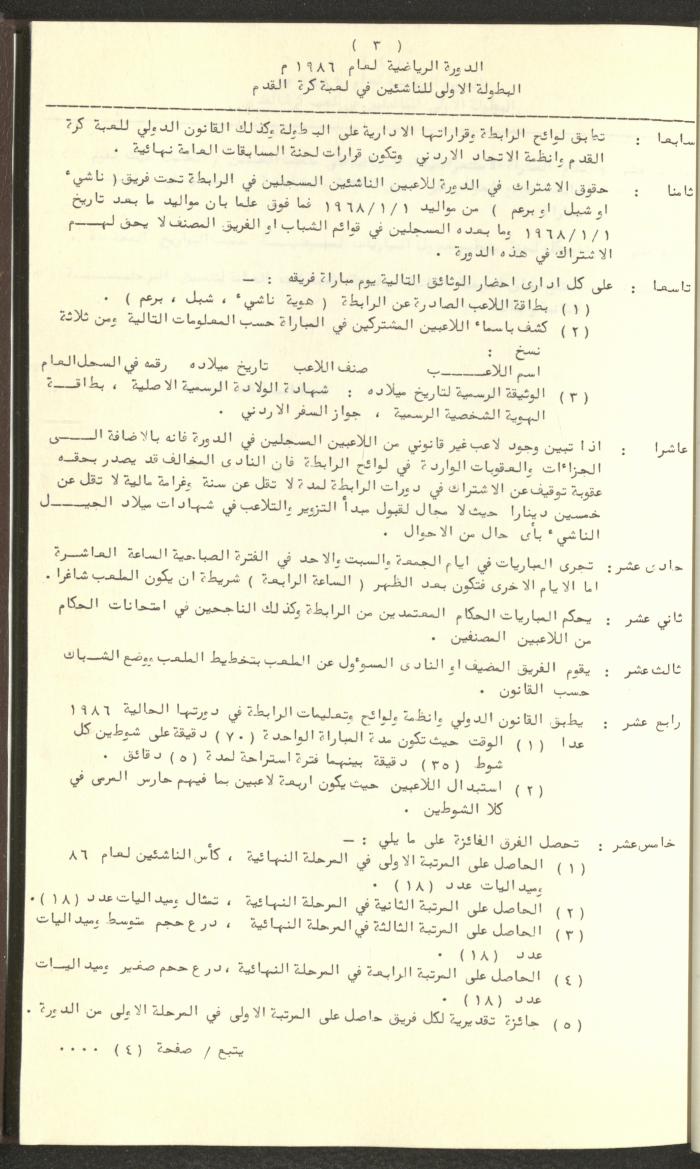 ( ٣ )
الدورة الرياضية لعام ١٩٨٦ م
البطولة الاولى للناشئين في لعبة كرة القدم
سابعا : تطبق لوائح الرابطة وقراراتها الادارية على البطولة وكذلك القانون الدولي للعبة كرة
القدم وانظمة الاتحاد الاردني وتكون قرارات لجنة المسابقات العامة نهائية .
ثامنا : حقوق الاشتراك في الدورة للاعبين الناشئين المسجلين في الرابطة تحت فريق ( ناشيء
او شبل او برعم ) من مواليد ١٩٦٨/١/١ فما فوق علما بان مواليد ما بعد تاريخ
١٩٦٨/١/١ وما بعده المسجلين في قوائم الشباب او الفريق المصنف لا يحق لهــم
الاشتراك في هذه الدورة .
تاسعا : على كل ادارى احضار الوثائق التالية يوم مباراة فريقه : ــ
( ١ ) بطاقة اللاعب الصادرة عن الرابطة ( هوية ناشيء ، شبل ، برعم ) .
( ٢ ) كشف باسماء اللاعبين المشتركين في المباراة حسب المعلومات التالية ومن ثلاثة
نسخ :
اسم اللاعـــــب صنف اللاعب تاريخ ميلاده رقمه في السجل العام
( ٣ ) الوثيقة الرسمية لتاريخ ميلاده : شهادة الولادة الرسمية الاصلية ، بطاقــة
الهوية الشخصية الرسمية ، جواز السفر الاردني .
عاشرا : اذا تبين وجود لاعب غير قانوني من اللاعبين المسجلين في الدورة فانه بالاضافة الــى
الجزاءات والعقوبات الواردة في لوائح الرابطة فان النادى المخالف قد يصدر بحقــه
عقوبة توقيف عن الاشتراك في دورات الرابطة لمدة لا تقل عن سنة وغرامة مالية لا تقل عن
خمسين دينارا حيث لا مجال لقبول مبدأ التزوير والتلاعب في شهادات ميلاد الجيــــل
الناشيء بأى حال من الاحوال .
حادى عشر : تجرى المباريات في ايام الجمعة والسبت والاحد في الفترة الصباحية الساعة العاشــرة
اما الايام الاخرى فتكون بعد الظهر ( الساعة الرابعة ) شريطة ان يكون الملعب شاغرا .
ثاني عشر : يحكم المباريات الحكام المعتمدين من الرابطة وكذلك الناجحين في امتحانات الحكام
من اللاعبين المصنفين .
ثالث عشر : يقوم الفريق المضيف او النادى المسوٴول عن الملعب بتخطيط الملعب ووضع الشــباك
حسب القانون .
رابع عشر : يطبق القانون الدولي وانظمة ولوائح وتعليمات الرابطة في دورتها الحالية ١٩٨٦
عدا ( ١ ) الوقت حيث تكون مدة المباراة الواحدة ( ٧٠ ) دقيقة على شوطين كل
شوط ( ٣٥ ) دقيقة بينهما فترة استراحة لمدة ( ٥ ) دقائق .
( ٢ ) استبدال اللاعبين حيث يكون اربعة لاعبين بما فيهم حارس المرمى في
كلا الشوطين .
خامس عشر : تحصل الفرق الفائزة على ما يلي : ــ
( ١ ) الحاصل على المرتبة الاولى في المرحلة النهائية ، كأس الناشئين لعام ٨٦
وميداليات عدد ( ١٨ ) .
( ٢ ) الحاصل على المرتبة الثانية في المرحلة النهائية ، تمثال وميداليات عدد ( ١٨ ) .
( ٣ ) الحاصل على المرتبة الثالثة في المرحلة النهائية ، درع حجم متوسط وميداليات
عدد ( ١٨ ) .
( ٤ ) الحاصل على المرتبة الرابعة في المرحلة النهائية ، درع حجم صغير وميداليــات
عدد ( ١٨ ) .
( ٥ ) جائزة تقديرية لكل فريق حاصل على المرتبة الاولى في المرحلة الاولى من الدورة .
يتبع / صفحة ( ٤ ) ....